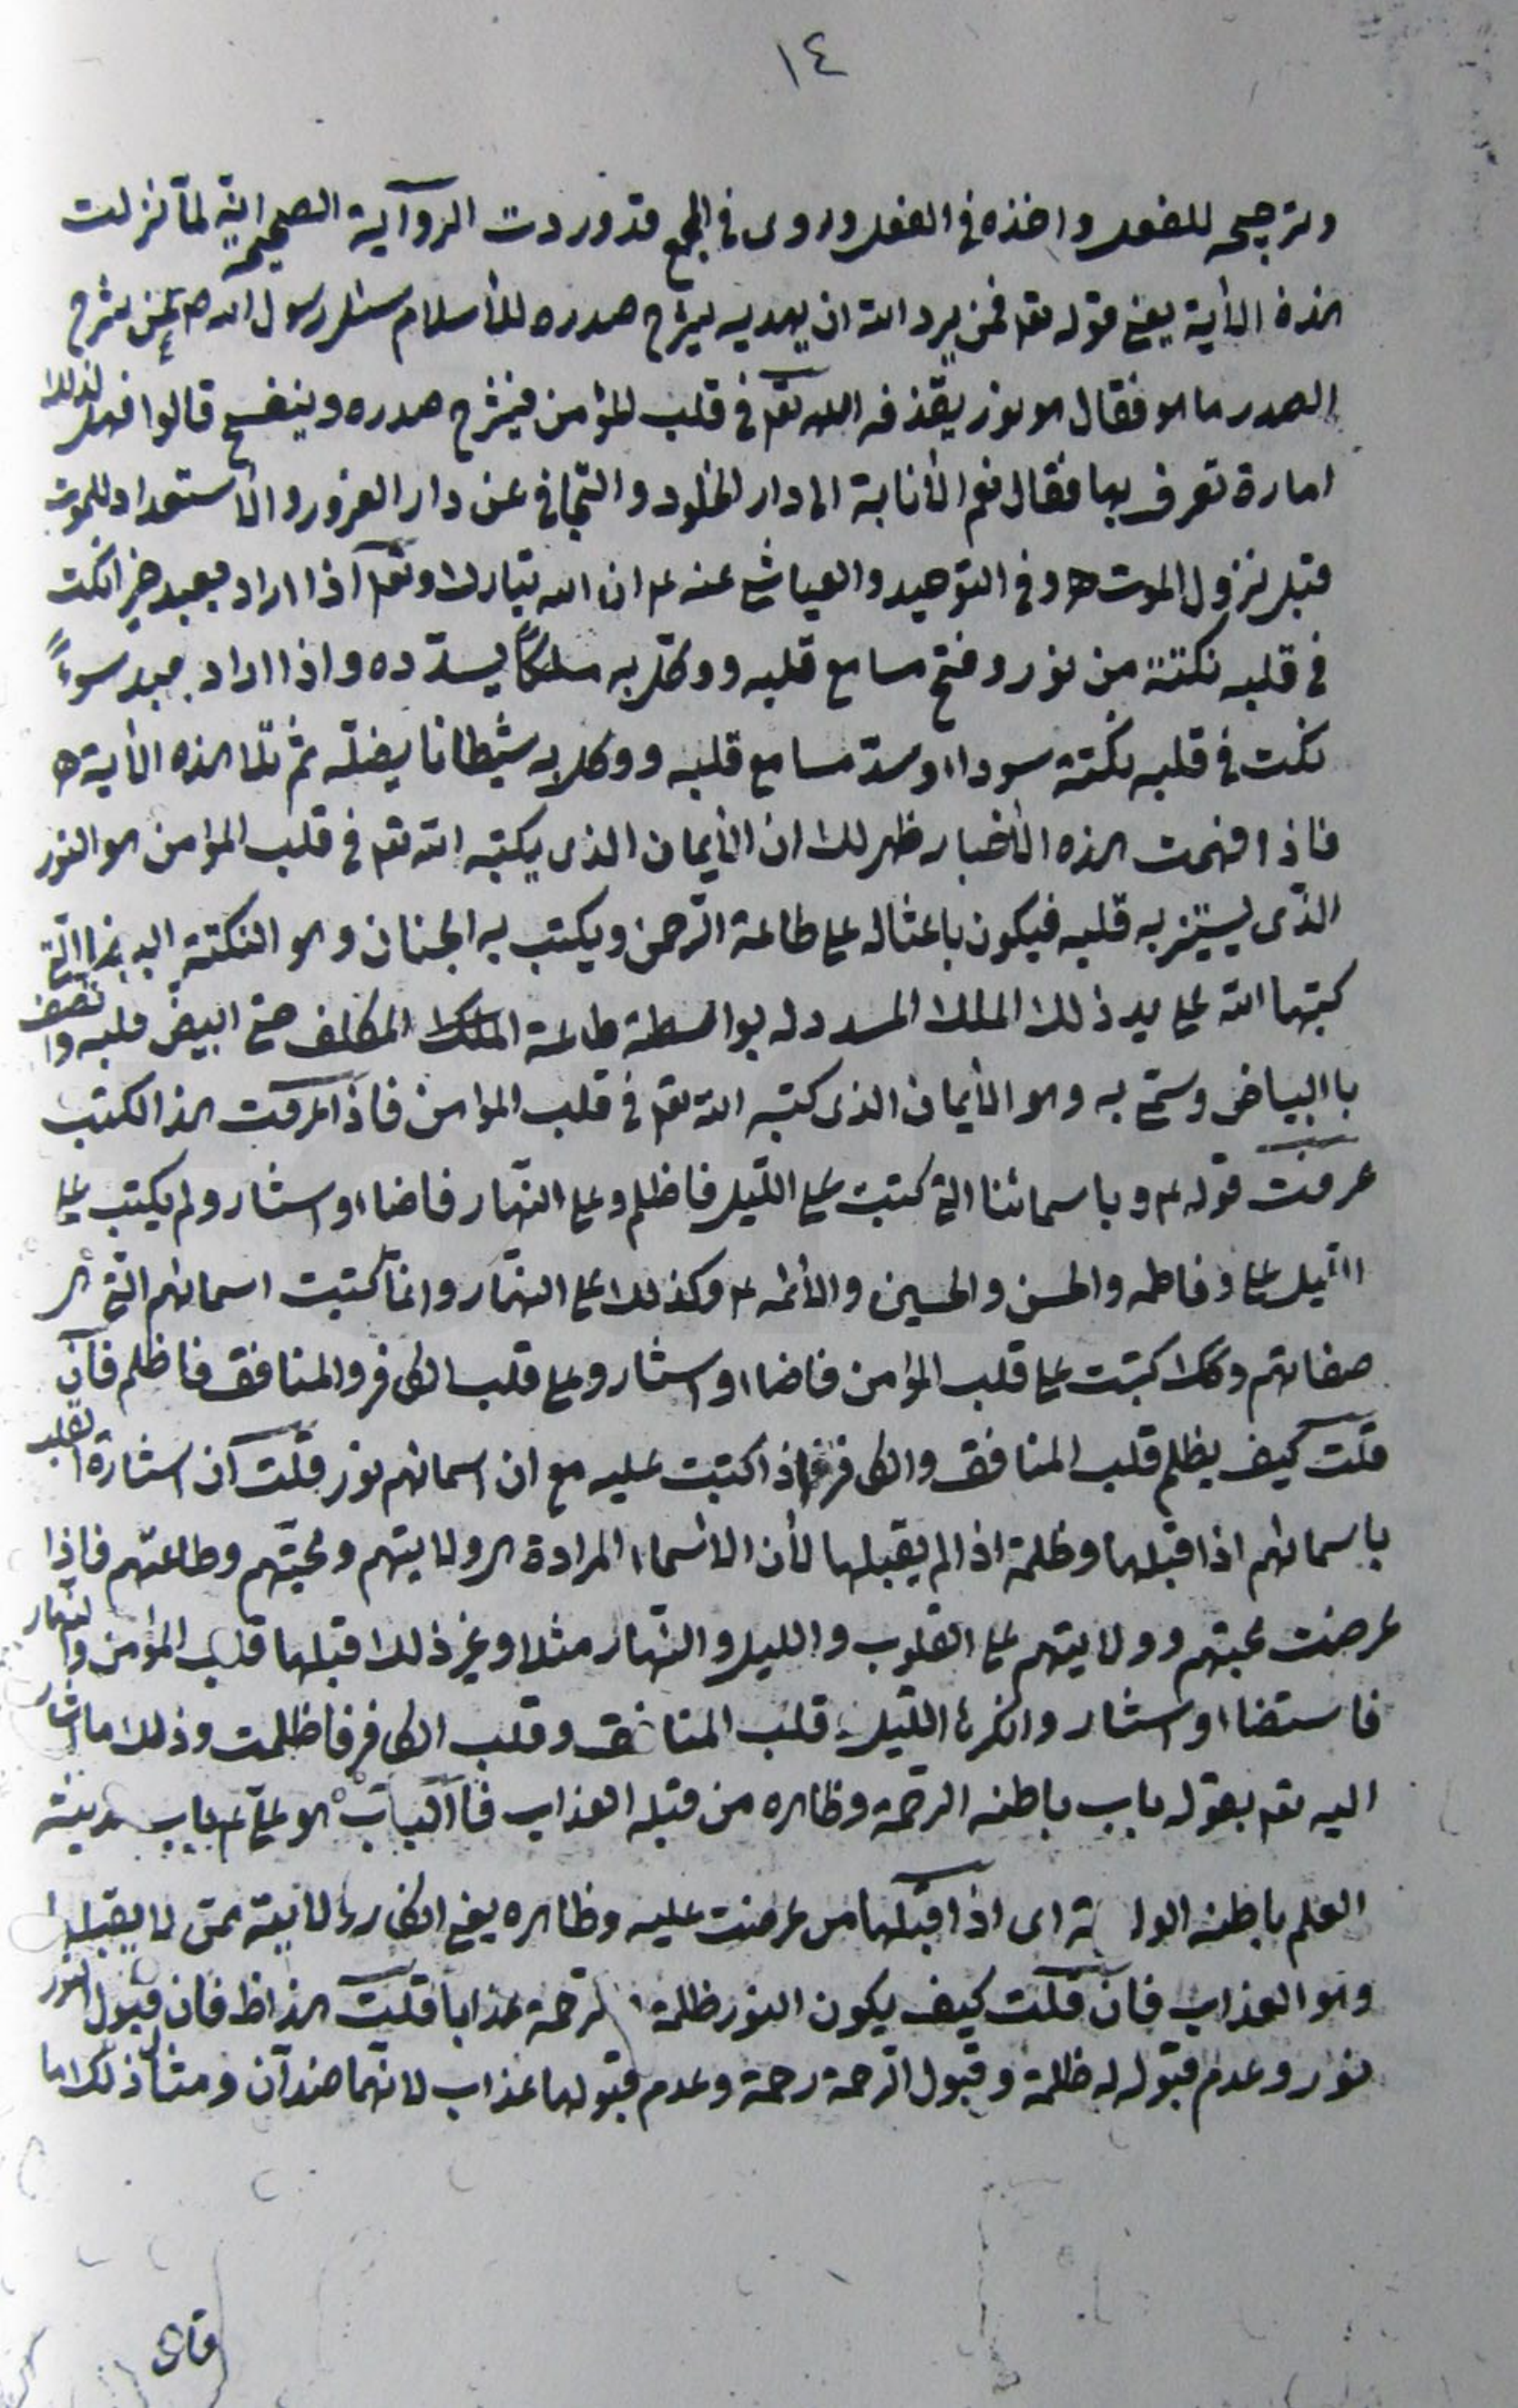 ١٤
وترجيحه للفعل واخذه في الفعل وروى في المجمع قد وردت الرواية الصحيحة انه لما نزلت
هذه الأية يعني قوله تعا فمن يرد الله ان يهديه يشرح صدره للأسلام سئل رسول الله ص عن شرح
الصدر ما هو فقال هو نور يقذفه الله تعا في قلب المؤمن فيشرح صدره وينفسح قالوا فهل لذلك
امارة تعرف بها فقال نعم الأنابة الى دار الخلود والتجافي عن دار الغرور والأستعداد للموت
قبل نزول الموت ه وفي التوحيد والعياشي عنه ع ان الله تبارك وتعا اذا اراد بعبد خيرا نكت
في قلبه نكتة من نور وفتح مسامع قلبه ووكل به ملكاً يسدّده واذا اراد بعبد سوءً
نكت في قلبه نكتة سوداء وسدّ مسامع قلبه ووكل به شيطانا يضلّه ثم تلا هذه الأية ه
فاذا فهمت هذه الأخبار ظهر لك ان الأيمان الذي يكتبه الله تعا في قلب المؤمن هو النور
الذّي يستنير به قلبه فيكون باعثا له على طاعة الرّحمن ويكتب به الجنان وهو النكتة البيضاء الّتي
كتبها الله على يد ذلك الملك المسدد له بواسطة طاعة الملك المكلف حتى ابيض قلبه واتّصف
باالبياض وسمّي به وهو الأيمان الذي كتبه الله تعا في قلب المؤمن فاذا عرفت هذا الكتب
عرفت قوله ع وباسمائنا التي كتبت على اللّيل فاظلم وعلى النّهار فاضاء واستنار ولم يكتب على
اللّيل علي وفاطمه والحسن والحسين والأئمه ع وكذلك على النهّار وانمّا كتبت اسمائهم التي هي
صفاتهم وكك كتبت على قلب المؤمن فاضاء واستنار وعلى قلب الكافر والمنافق فاظلم فان
قلت كيف يظلم قلب المنافق والكافر اذا كتبت عليه مع ان اسمائهم نور قلت ان استنارة القلب
باسمائهم اذا قبلها وظلمة اذا لم يقبلها لأن الأسماء المرادة هي ولايتهم ومحبّتهم وطاعتهم فاذا
عرضت محبتهم وولايتهم على القلوب والليل والنّهار مثلا وغير ذلك قبلها قلب المؤمن والنهار
فاستضاء واستنار وانكرها اللّيل وقلب المنافق وقلب الكافر فاظلمت وذلك ما اشار
اليه تعا بقوله باب باطنه الرحمة وظاهره من قبله العذاب فاالباب هو علي ع باب مدينة
العلم باطنه اي اذا قبلها من عرضت عليه وظاهره يعني انكار ممّن لا يقبلها
وهو العذاب فان قلت كيف يكون النور ظلمة الرّحمة عذابا قلت هذا ظ فان قبول النور
نور وعدم قبوله له ظلمة وقبول الرّحمة رحمة وعدم قبولها عذاب لانهما ضدّان ومثال ذلك ما
قال